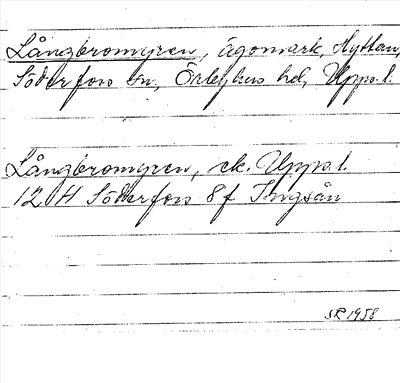 Långbromyren, ägomark, Hyttan,
Söderfors sn, Örbyhus hd, Upps. l.
Långbromyren, ek. Upps. l.
12 H Söderfors 8 f Ingsån
SR 1958